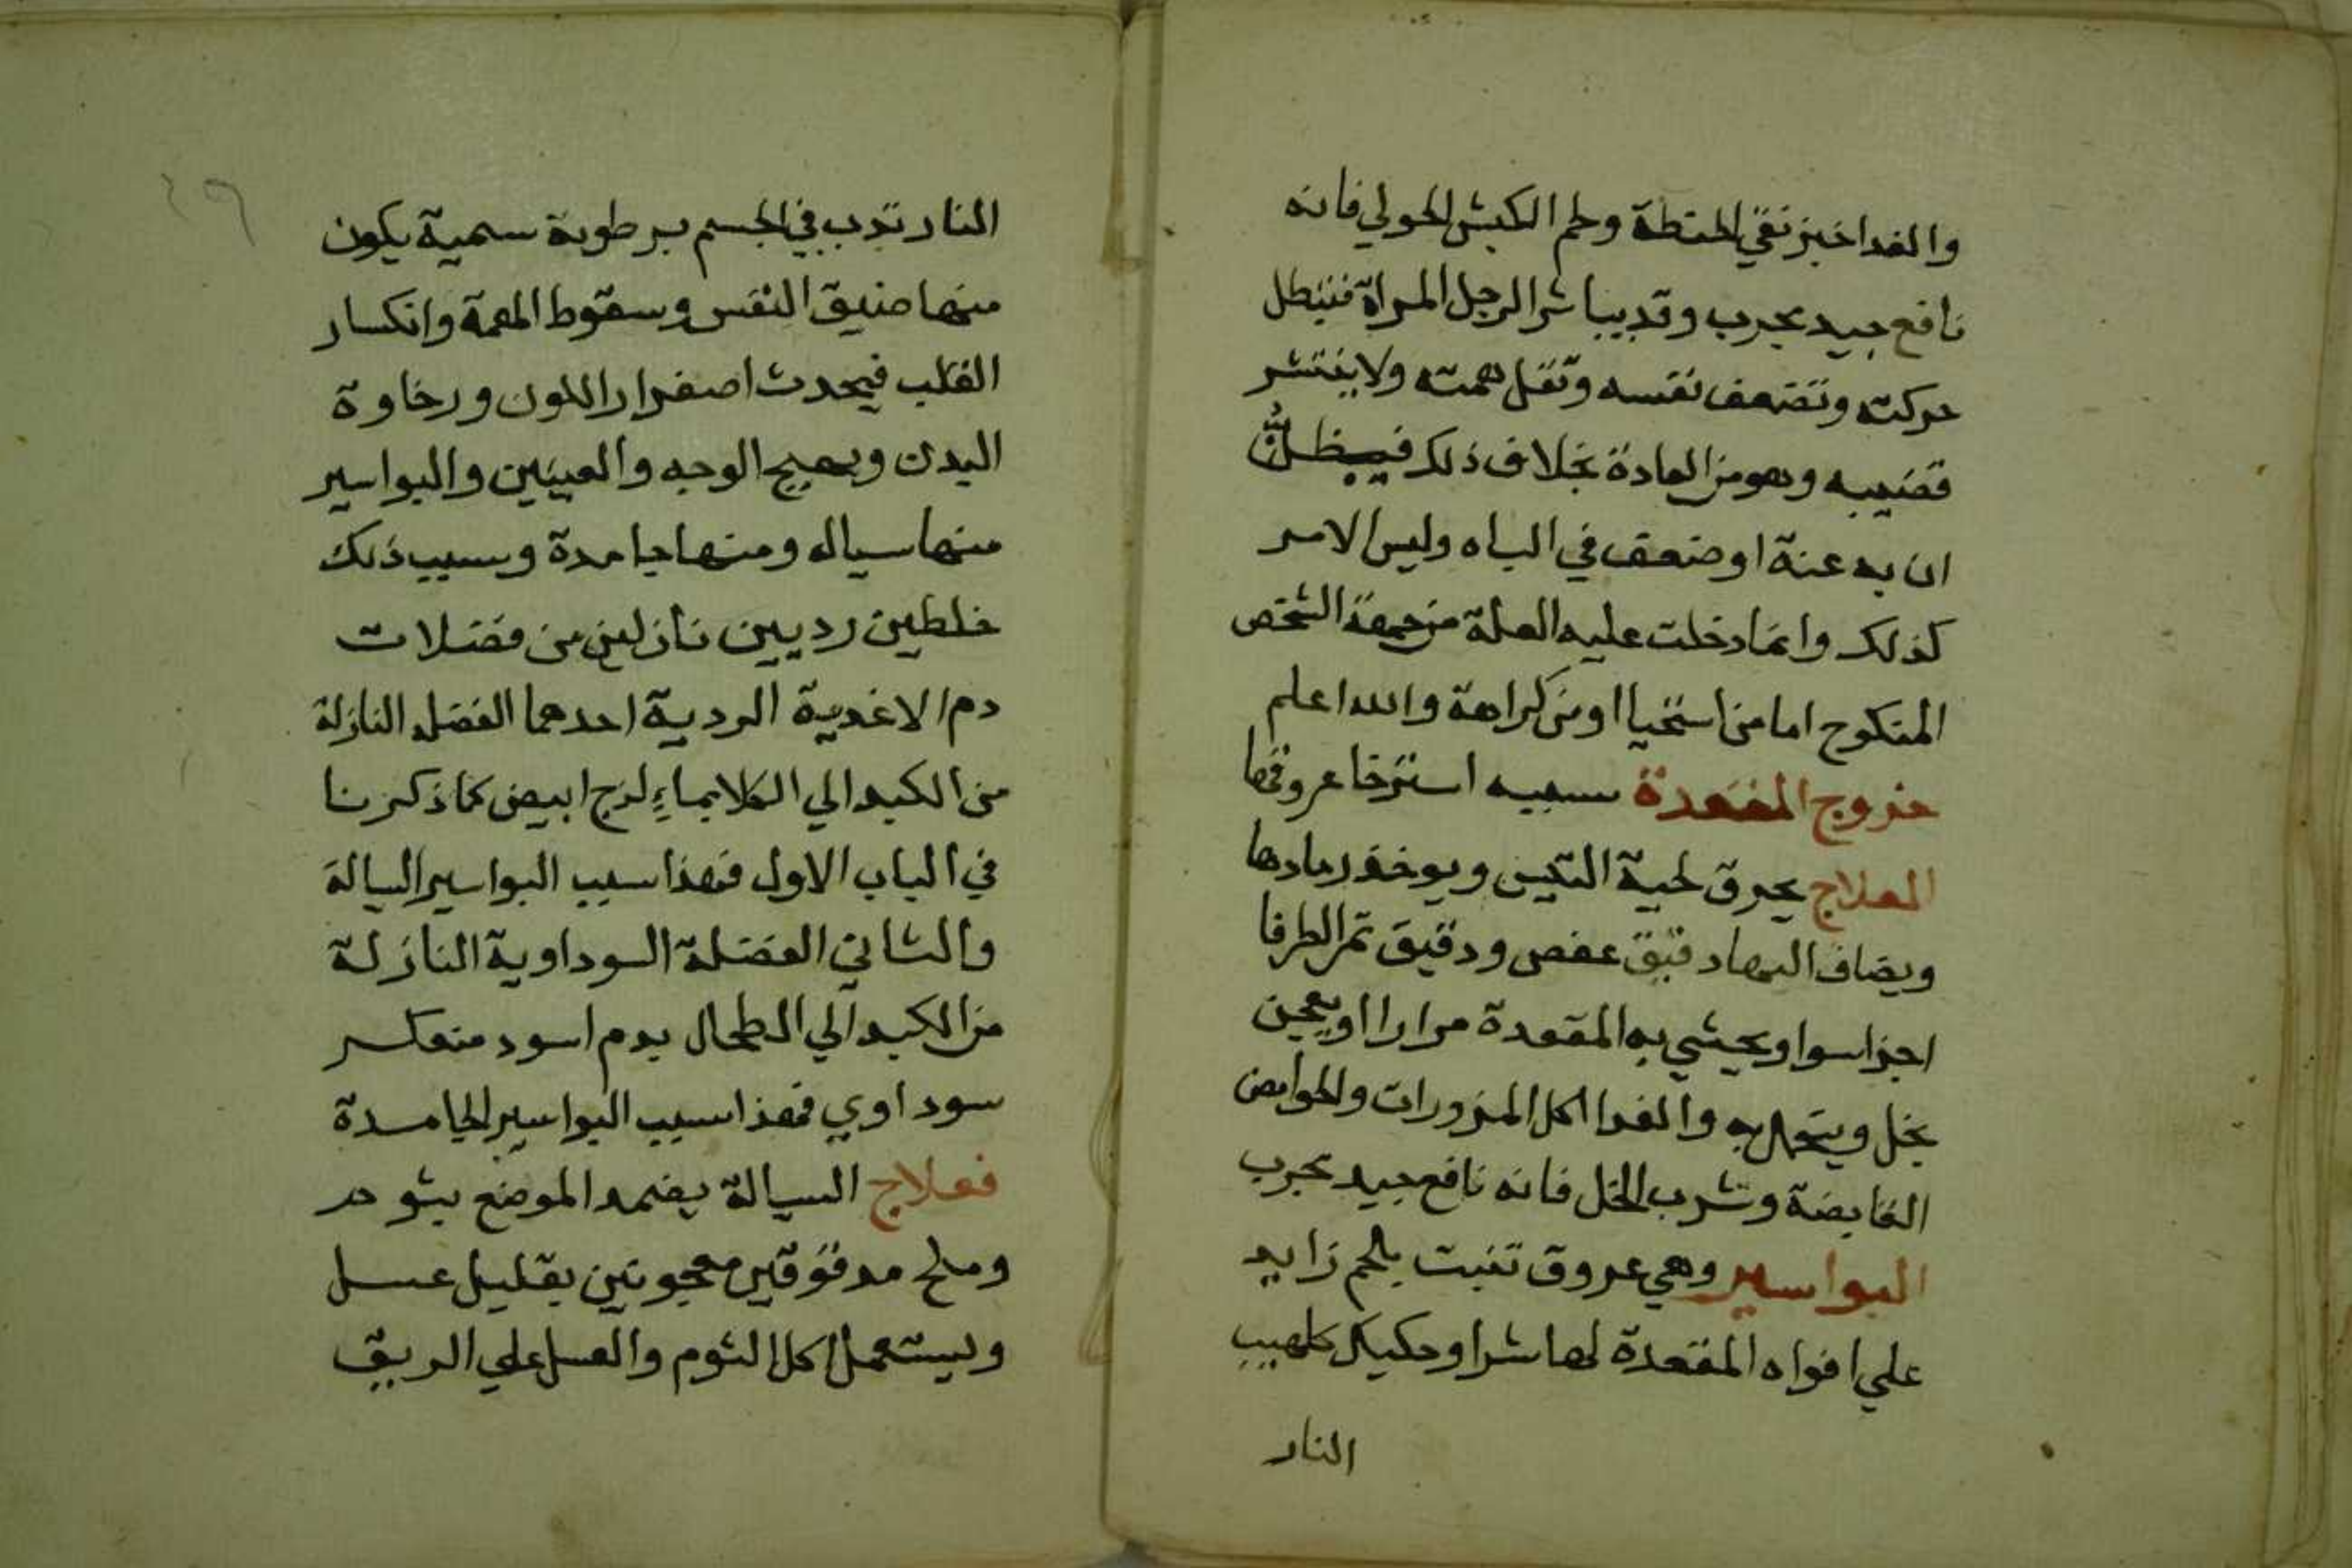 والغدا خبز نقي الحنطة ولحم الكبش الحولي فانه
نافع جيد مجرب وقد يباشر الرجل المراة فتبطل
حركته وتضعف نفسه وتقل همته ولا ينتشر
قضيبه وهو من العادة بخلاف ذلك فيظن
ان به عنة او ضعف في الباه وليس الامر
كذلك وانما دخلت عليه العلة من جهة الشخص
المنكوح اما من استحيا او من كراهة والله اعلم
خروج المقعدة سببه استرخا عروقها
العلاج يحرق لحية التيس ويوخذ رمادها
ويضاف اليها دقيق عفص ودقيق ثمر الطرفا
اجزا سوا ويحشي به المقعدة مرارا او يعجن
بخل ويتحمل به والغدا اكل المزورات والحوامض
القابضة وشرب الخل فانه نافع جيد مجرب
البواسير وهي عروق تنبت بلحم زايد
علي افواه المقعدة لها شرا وحكيك كلهيب
النار
٤٩
النار تدب في الجسم برطوبة سمية يكون
منها ضيق النفس وسقوط الهمة وانكسار
القلب فيحدث اصفرار اللون ورخاوة
البدن وبهيج الوجه والعينين والبواسير
منها سياله ومنها جامدة وسبب ذلك
خلطين رديين نازلين من فضلات
دم الاغدية الردية احدهما الفضله النازلة
من الكبد الي الكلا بماءٍ لزج ابيض كما ذكرنا
في الباب الاول فهذا سبب البواسير السيالة
والثاني الفضلة السوداوية النازلة
من الكبد الي الطحال بدم اسود منعكر
سوداوي فهذا سبب البواسير الجامدة
فعلاج السيالة يضمد الموضع بثوم
وملح مدقوقين معجونين بقليل عسل
ويستعمل اكل الثوم والعسل علي الريق